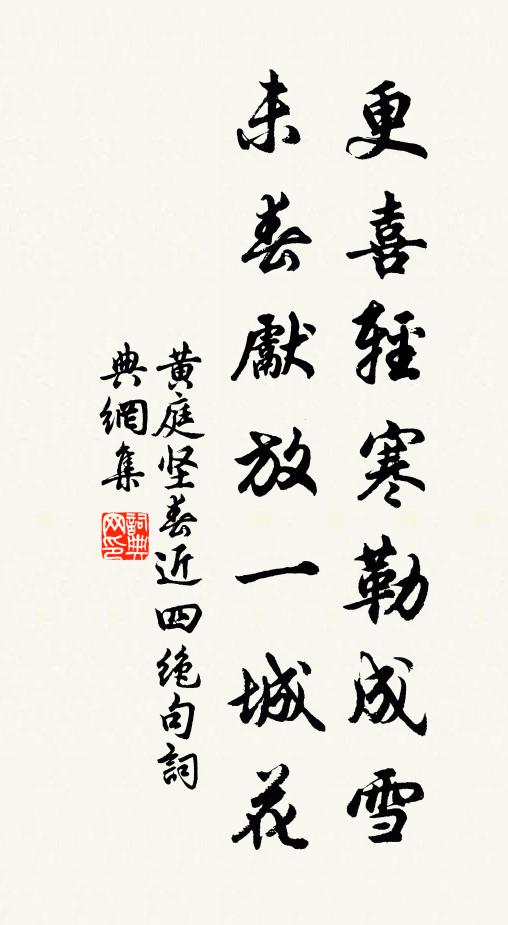 更喜輕寒勒成雪
未春獻放一城花
黄庭坚春近四绝句詞
典網集
詞典网印